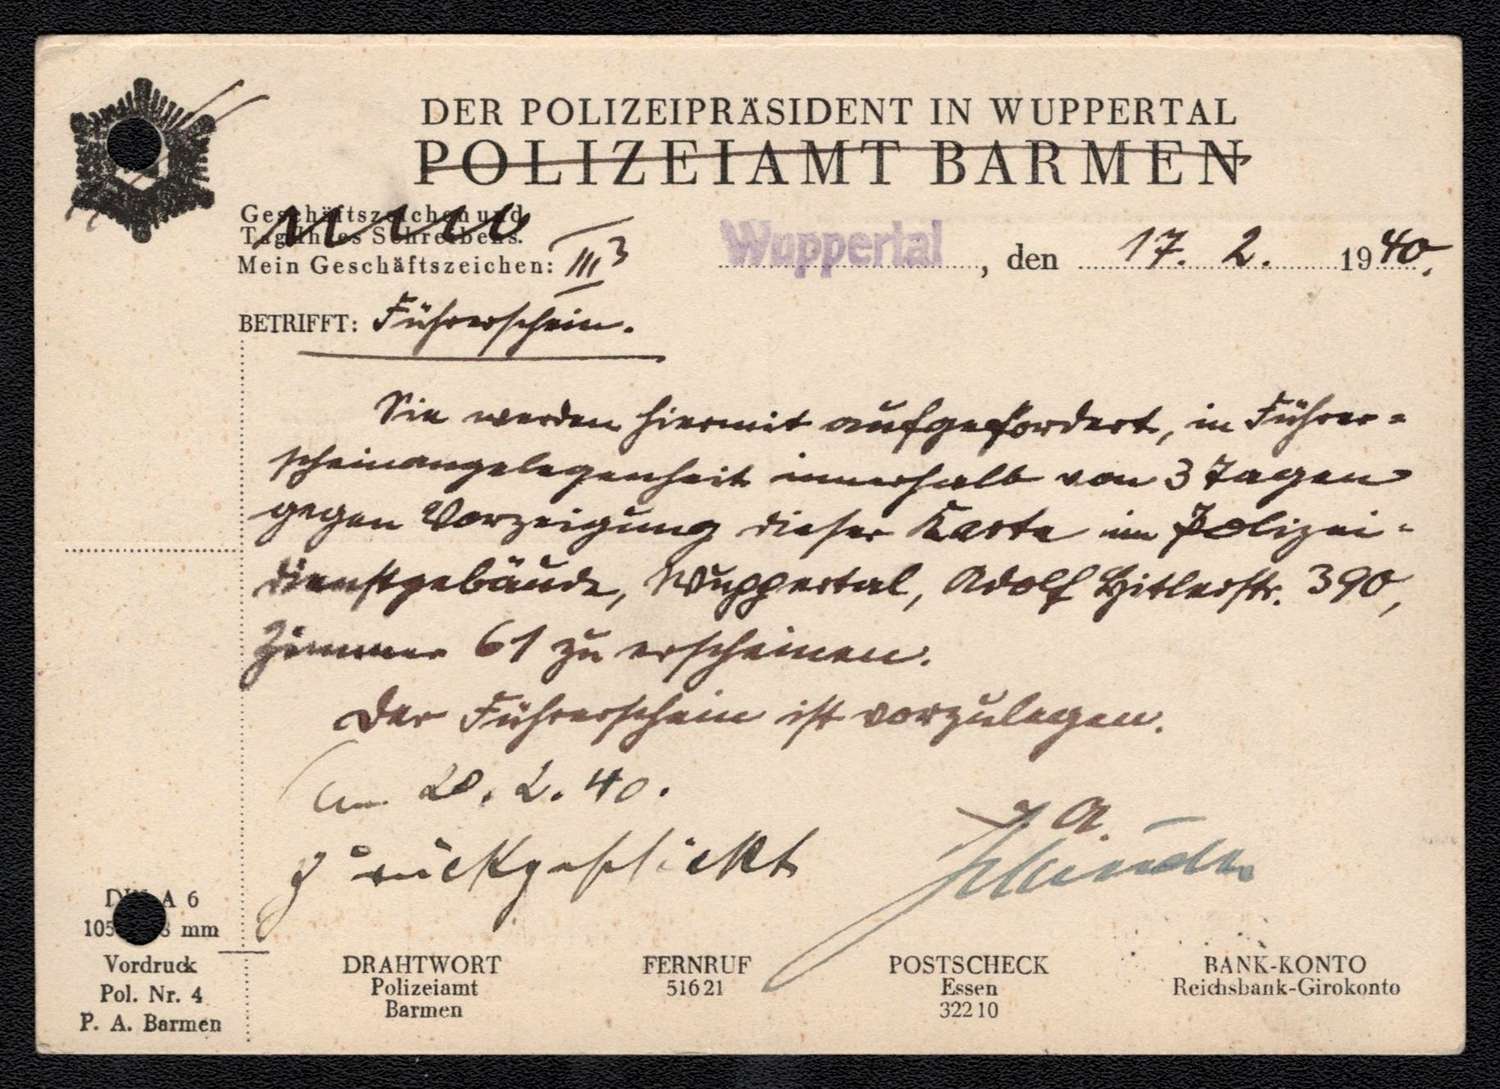 DER POLIZEIPRÄSIDENT IN WUPPERTAL
POLIZEIAMT BARMEN
Geschäftszeichen und
Tag Ihres Schreibens.
Mein Geschäftszeichen: III3
Wuppertal, den 17. 2. 1940.
BETRIFFT: Führerschein.
Sie werden hiermit aufgefordert, in Führer=
scheinangelegenheit innerhalb von 3 Tagen
gegen Vorzeigung dieser Karte im Polizei=
dienstgebäude, Wuppertal, Adolf Hitlerstr. 390,
Zimmer 61 zu erscheinen.
Der Führerschein ist vorzulegen.
Am 20. 2. 40.
zurückgeschickt
J. A.
DIN A 6
mm
Vordruck
Pol. Nr. 4
P. A. Barmen
DRAHTWORT
Polizeiamt
Barmen
FERNRUF
51621
POSTSCHECK
Essen
32210
BANK-KONTO
Reichsbank-Girokonto